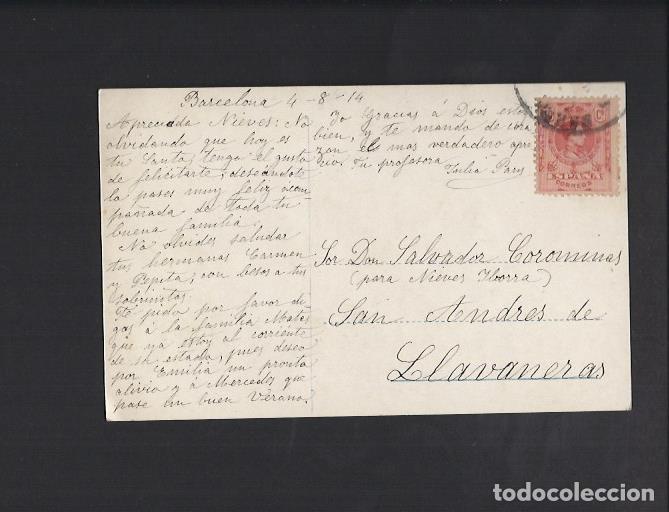 Barcelona 4-8-14
Apreciada Nieves: No
olvidando que hoy es
tu Santo, tengo el gusto
de felicitarte; deseandote
lo pases muy feliz acom
pañada de toda tu
buena familia.
No olvides saludar
tus hermanas Carmen
y Pepita; con besos a tus
sobrinitos.
Te pido por favor di-
gas á la familia Mates
que ya estoy al corriente
de su estado, pues deseo
por Emilia un pronto
alivio y á Mercedes que
pase un buen Verano.
Yo Gracias á Dios estoy
bien, y te mando de cora
zon el mas verdadero apre
cio. Tu profesora
Julia Paris
Sor Don Salvador Corominas
(para Nieves Iborra)
San Andres de
Llavaneras
ESPAÑA
CORREOS
todocoleccion.net